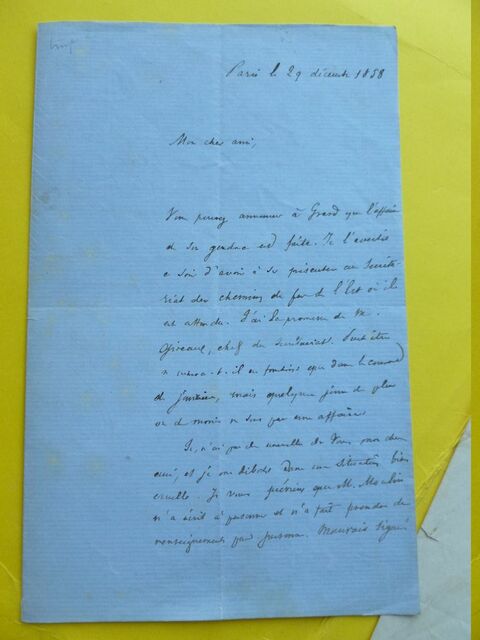 Paris le 29 décembre 1858
Mon cher ami,
Vous pouvez annoncer à Grand que l'affaire
de son gendre est faite. Je l'avertis
ce soir d'avoir à se présenter au Secréta-
riat des chemins de fer de l'Est où il
est attendu. J'ai la promesse de M.
chef du Secrétariat. Peut être
n'entrera-t-il en fonctions que dans le courant
de janvier, mais quelques jours de plus
ou de moins ne sont pas une affaire.
Ici, n'ai pas de nouvelles de vous, mon cher
ami, et je me débats dans une situation bien
cruelle. Je vous préviens que M. Moulin
n'a écrit à personne et n'a fait prendre de
renseignements par personne. Mauvais signe